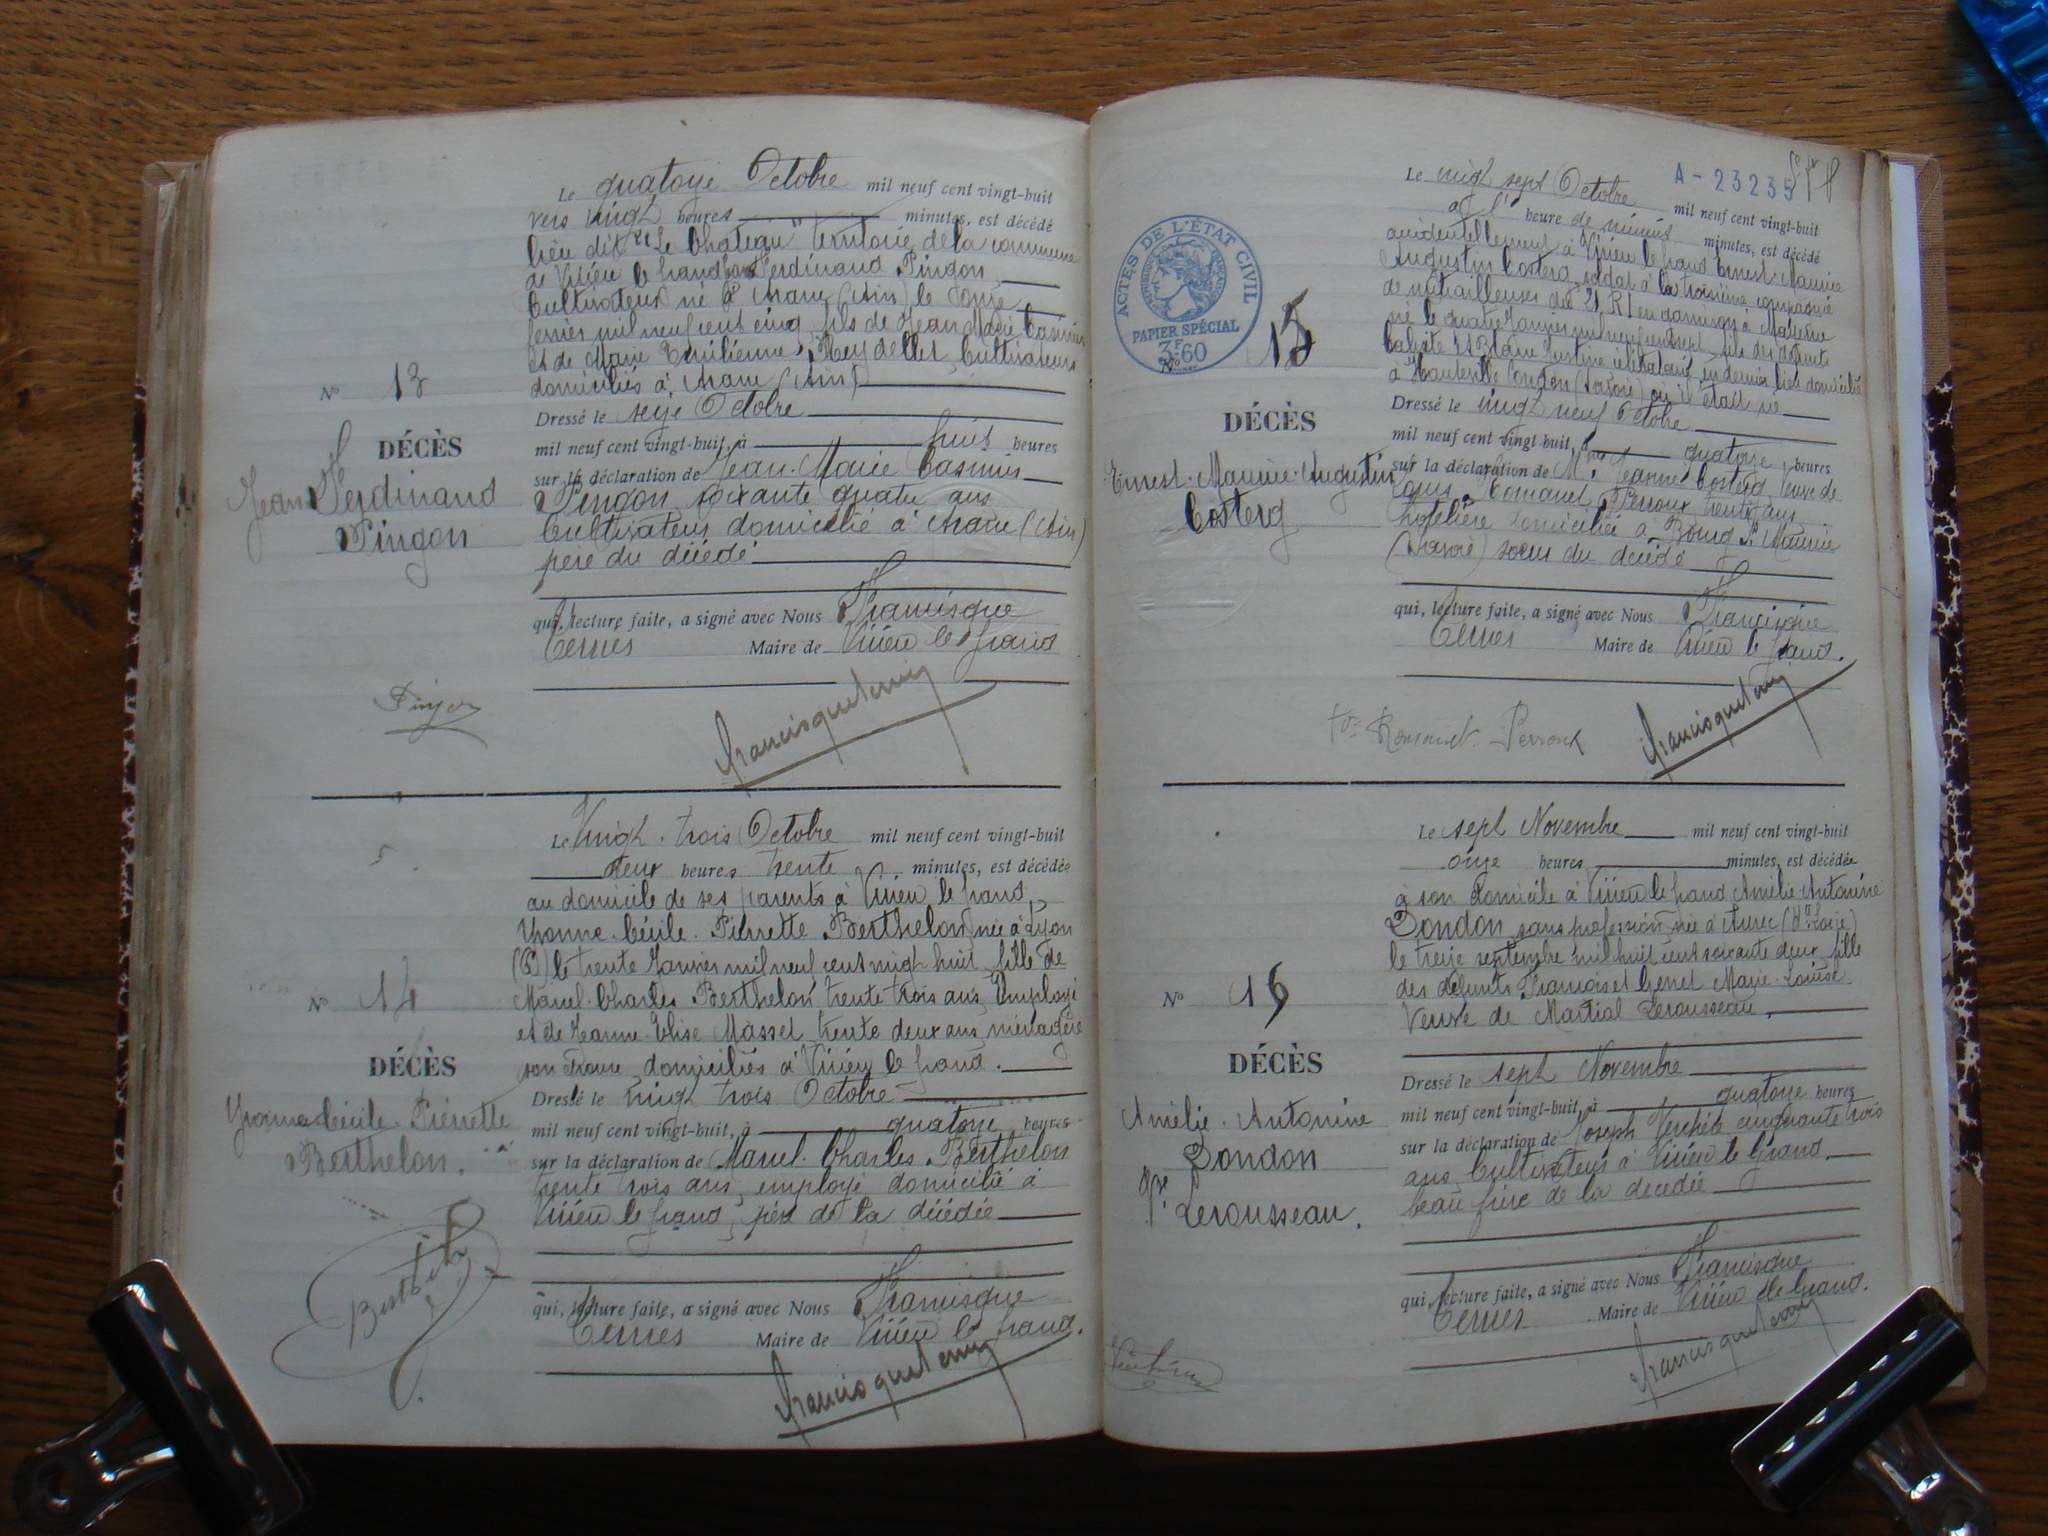 Le quatorze Octobre mil neuf cent vingt-huit
vers vingt heures minutes, est décédé
lieu dit "Le Chateau" territoire de la commune
de Virieu le Grand Jean Ferdinand Pingon
Cultivateur né à (Ain) le onze
février mil neuf cent cinq, fils de Jean Marie Casimir
et de Marie Emilienne Meydellet, Cultivateurs
domiciliés à (Ain)
N° 13
DÉCÈS
Jean Ferdinand
Pingon
Dressé le seize Octobre
mil neuf cent vingt-huit à huit heures
sur la déclaration de Jean-Marie Casimir
Pingon, soixante quatre ans
Cultivateur domicilié à (Ain)
père du décédé
qui, lecture faite, a signé avec Nous Francisque
Ternes Maire de Virieu le Grand
Pingon
Le Vingt-trois Octobre mil neuf cent vingt-huit
deux heures trente minutes, est décédée
au domicile de ses parents à Virieu le Grand,
Yvonne-Cécile-Pierrette Berthelon, née à Lyon
le trente Janvier mil neuf cent vingt huit, fille de
Marcel-Charles Berthelon, trente trois ans, Employé
et de Jeanne-Elise Masset, trente deux ans, ménagère
son épouse, domiciliés à Virieu le Grand.
N° 14
DÉCÈS
Yvonne-Cécile-Pierrette
Berthelon.
Dressé le vingt trois Octobre
mil neuf cent vingt-huit, à quatorze heures
sur la déclaration de Marcel-Charles Berthelon
trente trois ans, employé domicilié à
Virieu le Grand, père de la décédée
qui, lecture faite, a signé avec Nous Francisque
Ternes Maire de Virieu le Grand.
A-23235
Le vingt sept Octobre mil neuf cent vingt-huit
à heure de minuit minutes, est décédé
accidentellement à Virieu le Grand Ernest-Maurice
Augustin Costerg, soldat à la troisième compagnie
de mitrailleuses du RI en garnison à
né le quatre Janvier mil neuf cent sept, fils des défunts
Calixte et Blanc Justine célibataire, en dernier lieu domicilié
à Hauteville Gondon (Savoie) où il était né
ACTES DE L'ÉTAT CIVIL
PAPIER SPÉCIAL
3F.60
N° 15
DÉCÈS
Ernest-Maurice-Augustin
Costerg
Dressé le vingt neuf Octobre
mil neuf cent vingt-huit, à quatorze heures
sur la déclaration de Mme Jeanne Costerg Veuve de
Louis Romanet Perroux trente ans
hôtelière domiciliée à Bourg St Maurice
(Savoie) soeur du décédé
qui, lecture faite, a signé avec Nous Francisque
Ternes Maire de Virieu le Grand.
Romanet-Perroux
Le sept Novembre mil neuf cent vingt-huit
onze heures minutes, est décédée
à son domicile à Virieu le Grand Amélie Antonine
Dondon, sans profession, née à Aurec (Hte Loire)
le treize septembre mil huit cent soixante deux, fille
des défunts François et Genet Marie-Louise
Veuve de Martial Lerousseau,
N° 16
DÉCÈS
Amélie-Antonine
Dondon
Vve Lerousseau.
Dressé le sept Novembre
mil neuf cent vingt-huit, à quatorze heures
sur la déclaration de Joseph cinquante trois
ans, Cultivateur à Virieu le Grand,
beau frère de la décédée
qui, lecture faite, a signé avec Nous Francisque
Ternes Maire de Virieu le Grand.